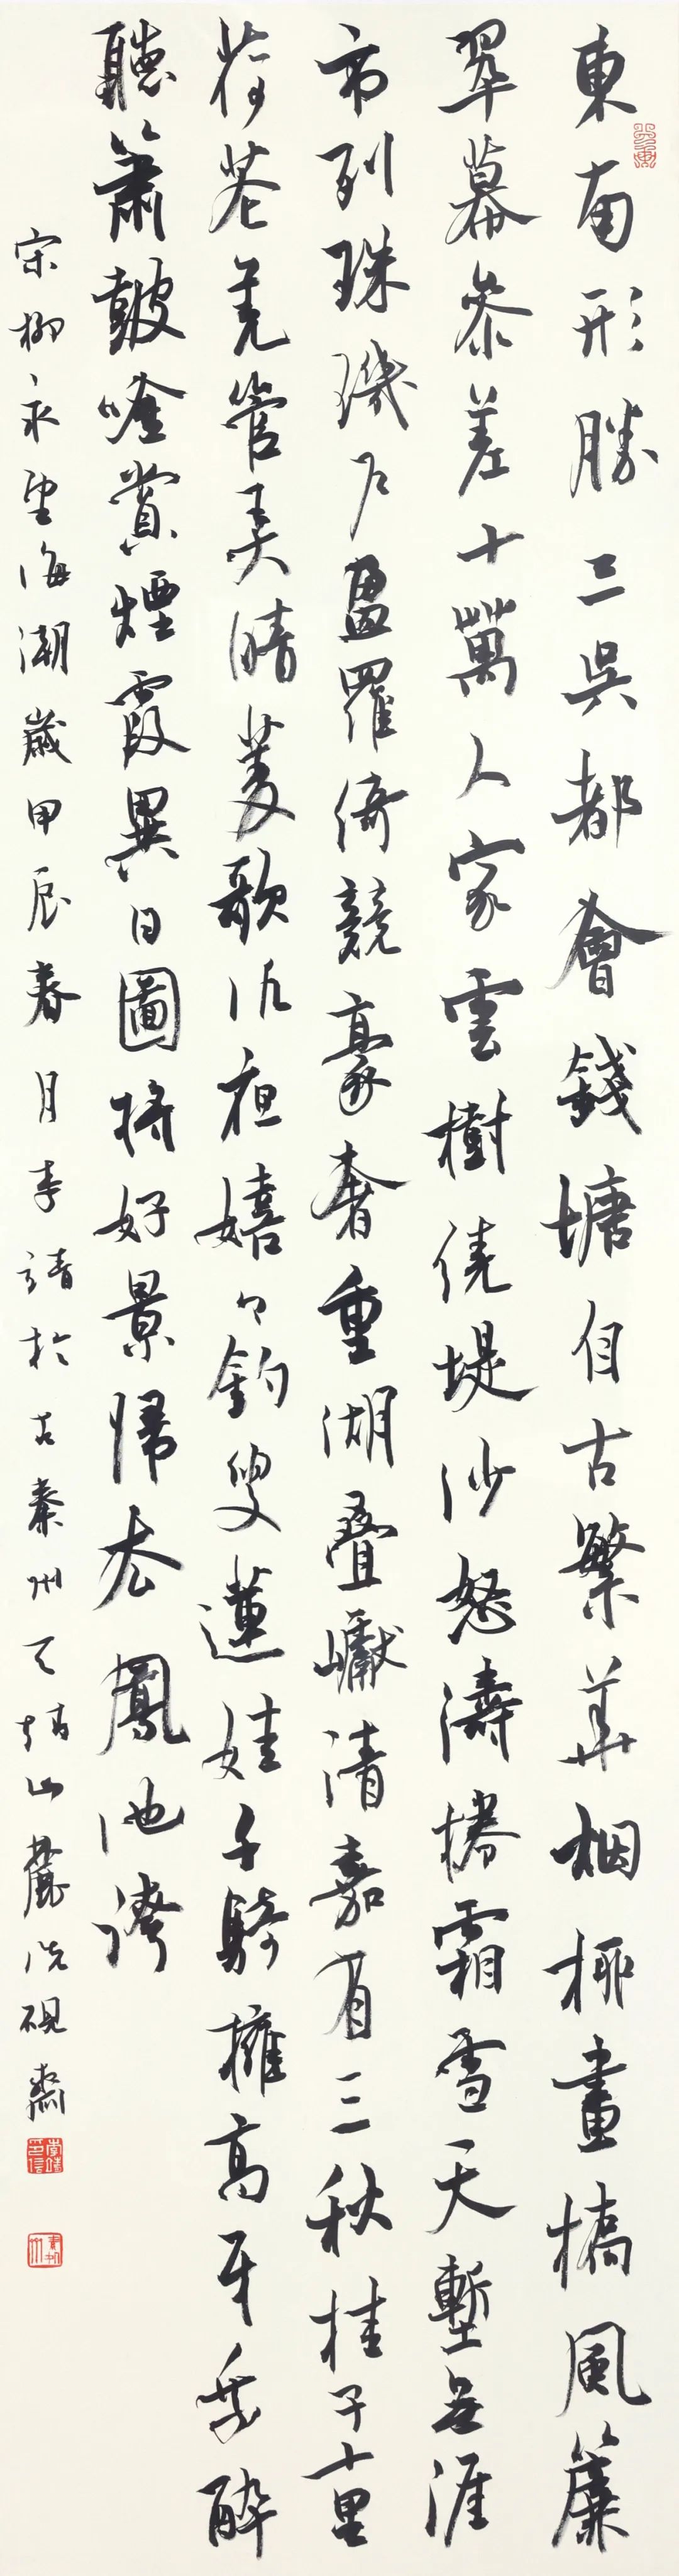 東南形勝三吳都會錢塘自古繁華烟柳畫橋風簾
翠幕參差十萬人家雲樹繞堤沙怒濤捲霜雪天塹無涯
市列珠璣戶盈羅綺競豪奢重湖疊巘清嘉有三秋桂子十里
荷花羌管弄晴菱歌泛夜嬉々釣叟蓮娃千騎擁高牙乘醉
聽簫鼓吟賞煙霞異日圖將好景歸去鳳池誇
宋柳永望海潮歲甲辰春月李靖於古秦州天靖山麓洗硯齋
李靖印信